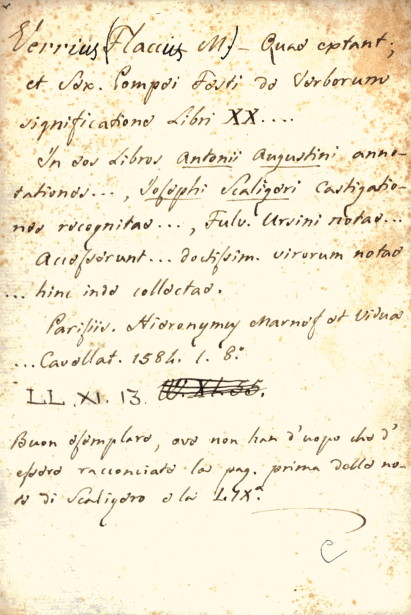 Verrius (Flaccus M.) – Quae extant;
et Sex. Pompei Festi de Verborum
significatione Libri XX....
In eos Libros Antonii Augustini anno-
tationes..., Josephi Scaligeri Castigatio-
nes recognitae..., Fulv. Ursini notae...
Accesserunt... doctissim. virorum notae
... hinc inde collectae.
Parisiis. Hieronymus Marnef et Vidua
... Cavellat. 1584. 1. 8.º
LL. XI. 13.
Buon esemplare, ove non han d'uopo che d'
essere racconciate la pag. prima delle no-
te di Scaligero e la LIXª.